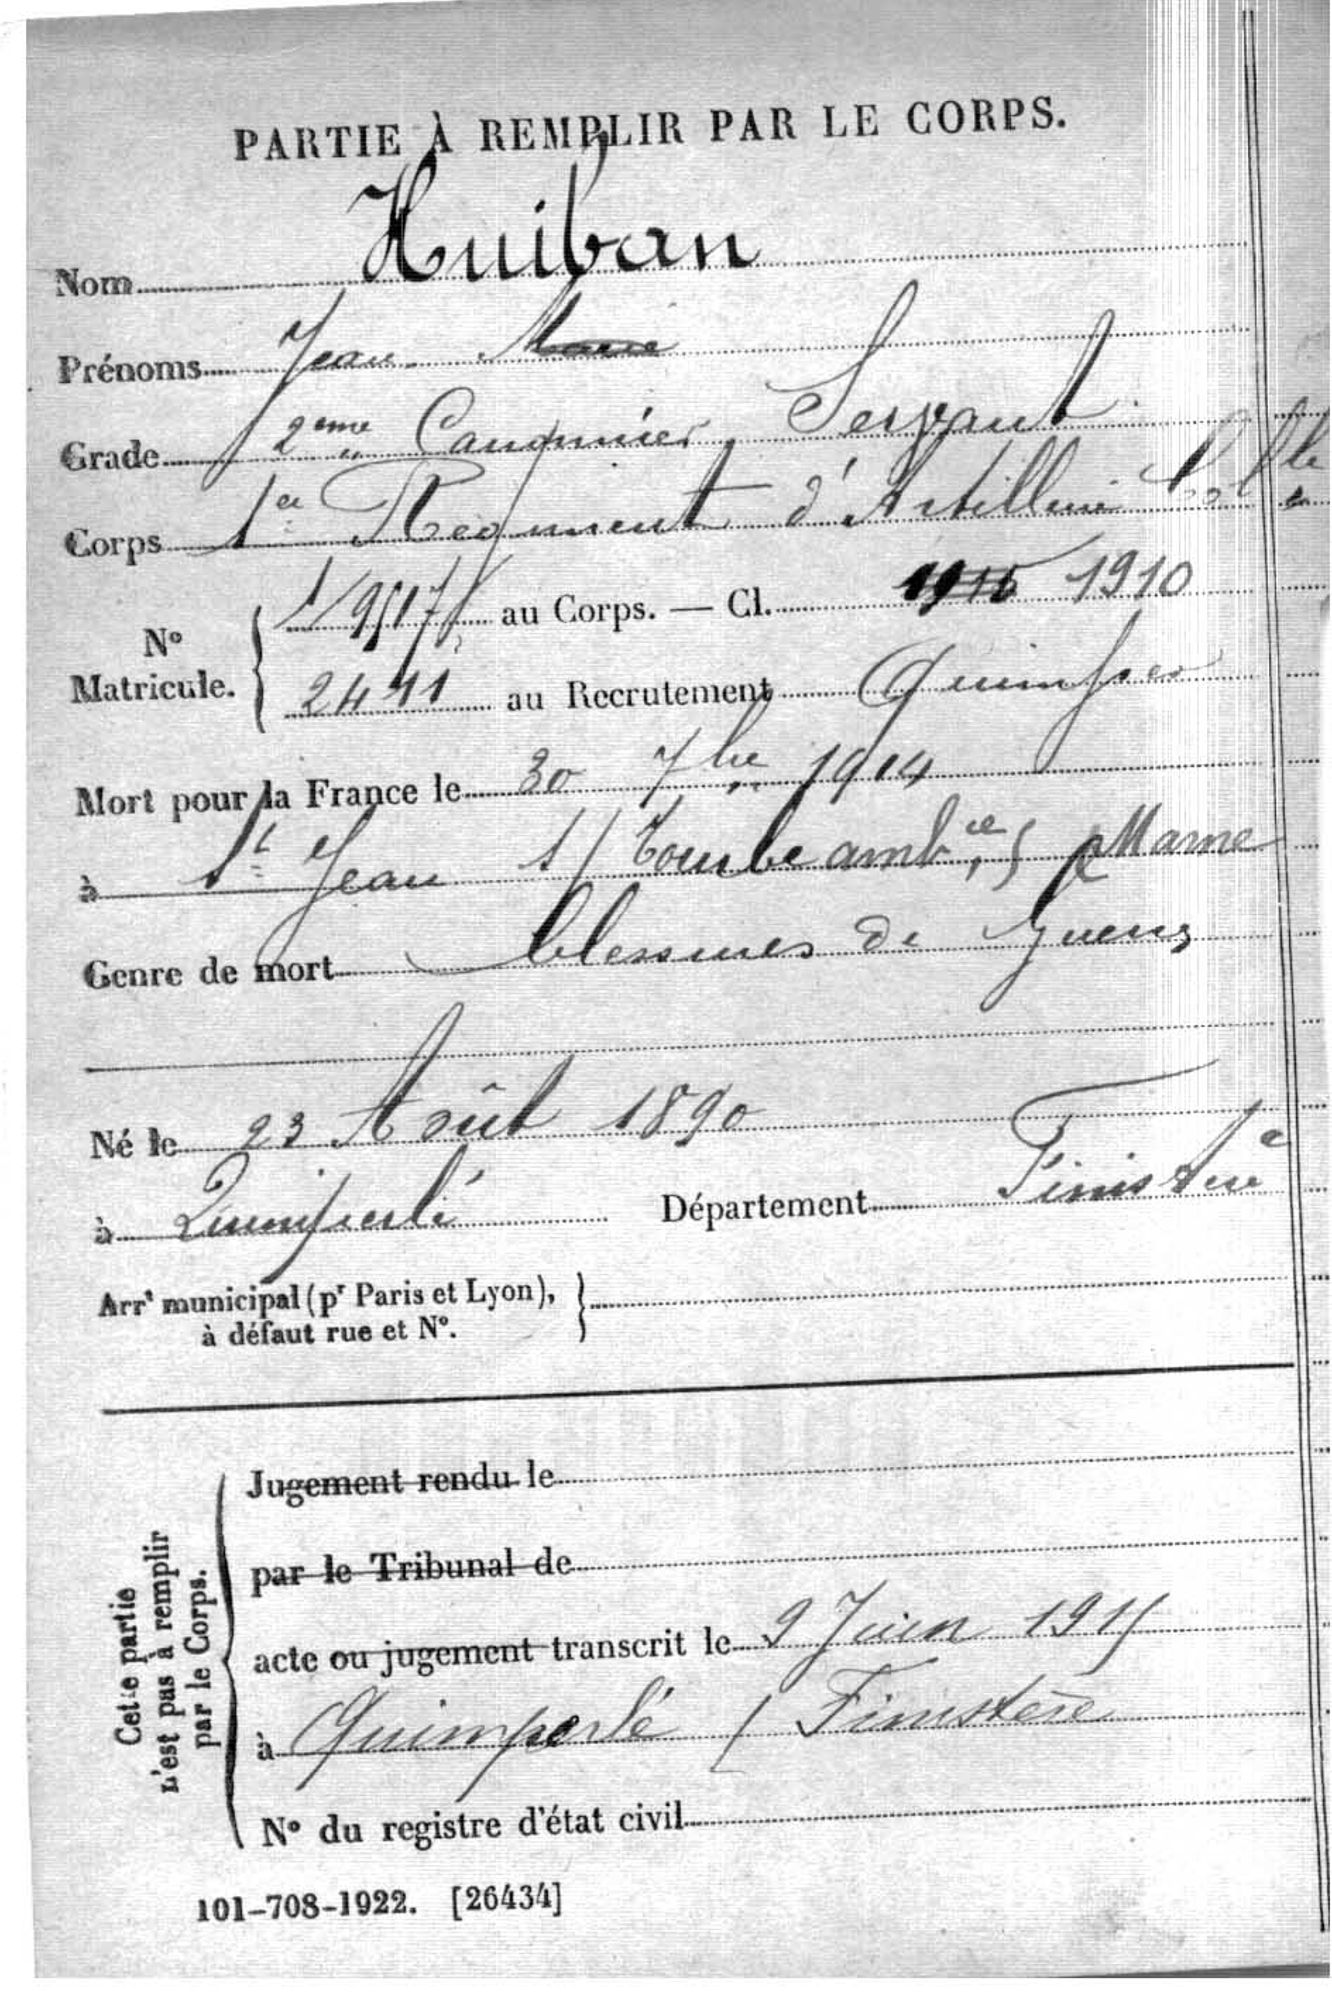 PARTIE À REMPLIR PAR LE CORPS.
Nom Huiban
Prénoms Jean
Grade 2eme Canonnier Servant
Corps 1er Régiment d'Artillerie Colle
No Matricule. 1/9517 au Corps. — Cl. 1915 1910
2411 au Recrutement Quimper
Mort pour la France le 30 7bre 1914
à St Jean s/ Tourbe ambce 5 Marne
Genre de mort blessures de guerre
Né le 23 Août 1890
à Quimperlé Département Finistère
Arrt municipal (pr Paris et Lyon),
à défaut rue et No.
Cette partie
n'est pas à remplir
par le Corps.
Jugement rendu le
par le Tribunal de
acte ou jugement transcrit le 9 Juin 1915
à Quimperlé (Finistère
No du registre d'état civil
101-708-1922. [26434]